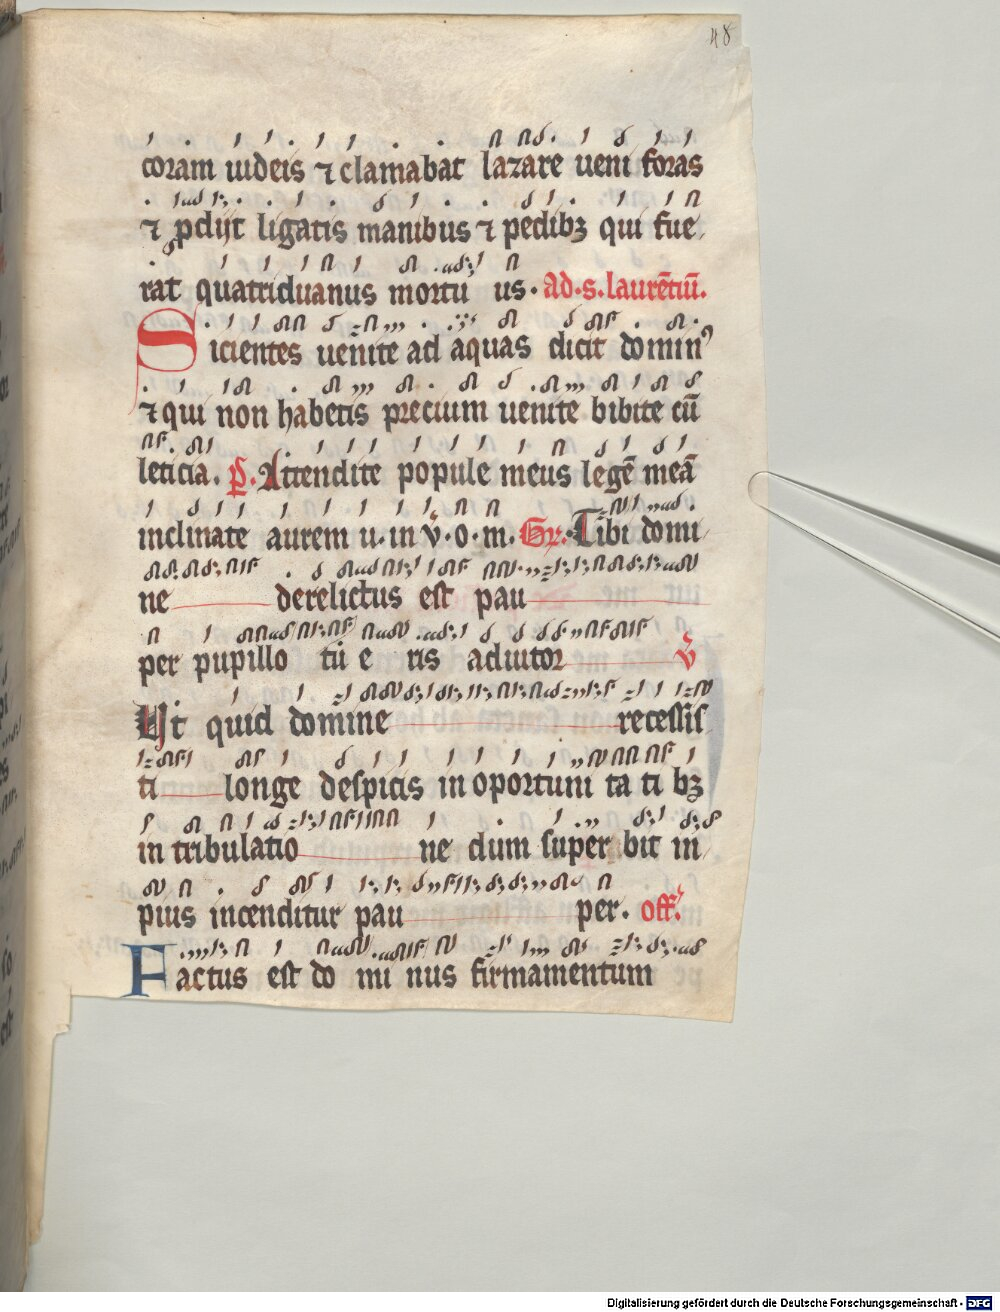 48
coram iudeis ⁊ clamabat lazare ueni foras
⁊ ꝓdijt ligatis manibus ⁊ pedibꝫ qui fue
rat quatriduanus mortu us· Ad·s·laurētiū.
Sicientes uenite ad aquas dicit dominꝰ
⁊ qui non habetis precium uenite bibite cū
leticia. P̱. Attendite popule meus legē meā
inclinate aurem u·in v̄·o·m. Gr̄·Tibi domi
ne derelictus est pau
per pupillo tu e ris adiutor v̄
Ut quid domine recessis
ti longe despicis in oportuni ta ti bꝫ
in tribulatio ne dum super bit in
pius incenditur pau per. off̄.
Factus est do mi nus firmamentum
Digitalisierung gefördert durch die Deutsche Forschungsgemeinschaft - DFG